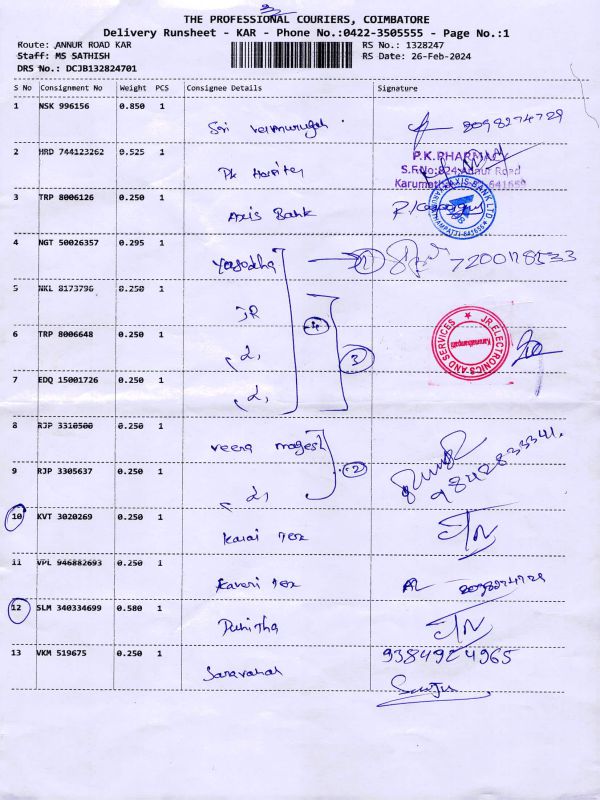 THE PROFESSIONAL COURIERS, COIMBATORE
Delivery Runsheet - KAR - Phone No.:0422-3505555 - Page No.:1
Route: ANNUR ROAD KAR
RS No.: 1328247
Staff: MS SATHISH
RS Date: 26-Feb-2024
DRS No.: DCJB132824701
S No Consignment No Weight PCS Consignee Details Signature
1 NSK 996156 0.850 1
8098274729
2 MRD 744123262 0.525 1
P.K.PHARMACY
S.F.No:824, Annur Road
Karumathampatti-641659
3 TRP 8006126 0.250 1 Axis Bank
AXIS BANK LTD
4 NGT 50026357 0.295 1 Yasodha 1 7200178533
5 NKL 8173796 0.250 1 JR 4
6 TRP 8006648 0.250 1 3
JR ELECTRONICS AND SERVICES
Karumathampatti
7 EDQ 15001726 0.250 1
8 RJP 3310500 0.250 1 veera magesh 2 9842833341.
9 RJP 3305637 0.250 1
10 KVT 3020269 0.250 1
11 VPL 946882693 0.250 1 Kaveri Tex 8098274729
12 SLM 340334699 0.580 1 Punitha
13 VKM 519675 0.250 1 Saravanan 9384924965